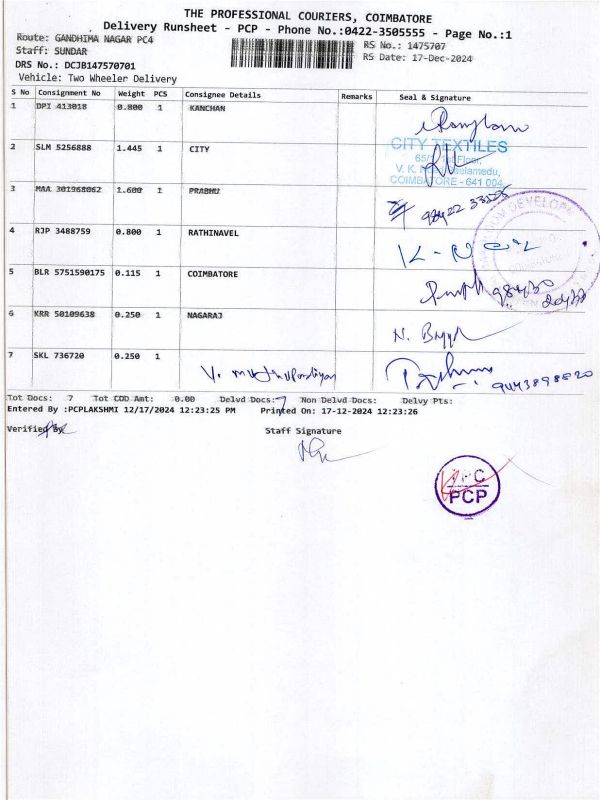 THE PROFESSIONAL COURIERS, COIMBATORE
Delivery Runsheet - PCP - Phone No.:0422-3505555 - Page No.:1
Route: GANDHIMA NAGAR PC4
RS No.: 1475707
Staff: SUNDAR
RS Date: 17-Dec-2024
DRS No.: DCJB147570701
Vehicle: Two Wheeler Delivery
S No Consignment No Weight PCS Consignee Details Remarks Seal & Signature
1 DPI 413018 0.800 1 KANCHAN
2 SLM 5256888 1.445 1 CITY
CITY TEXTILES
COIMBATORE - 641 004
3 MAA 301968062 1.600 1 PRABHU
4 RJP 3488759 0.800 1 RATHINAVEL
5 BLR 5751590175 0.115 1 COIMBATORE
6 KRR 50109638 0.250 1 NAGARAJ
7 SKL 736720 0.250 1
9443898820
Tot Docs: 7 Tot COD Amt: 0.00 Delvd Docs: 7 Non Delvd Docs: Delvy Pts:
Entered By :PCPLAKSHMI 12/17/2024 12:23:25 PM Printed On: 17-12-2024 12:23:26
Verified By
Staff Signature
PCP